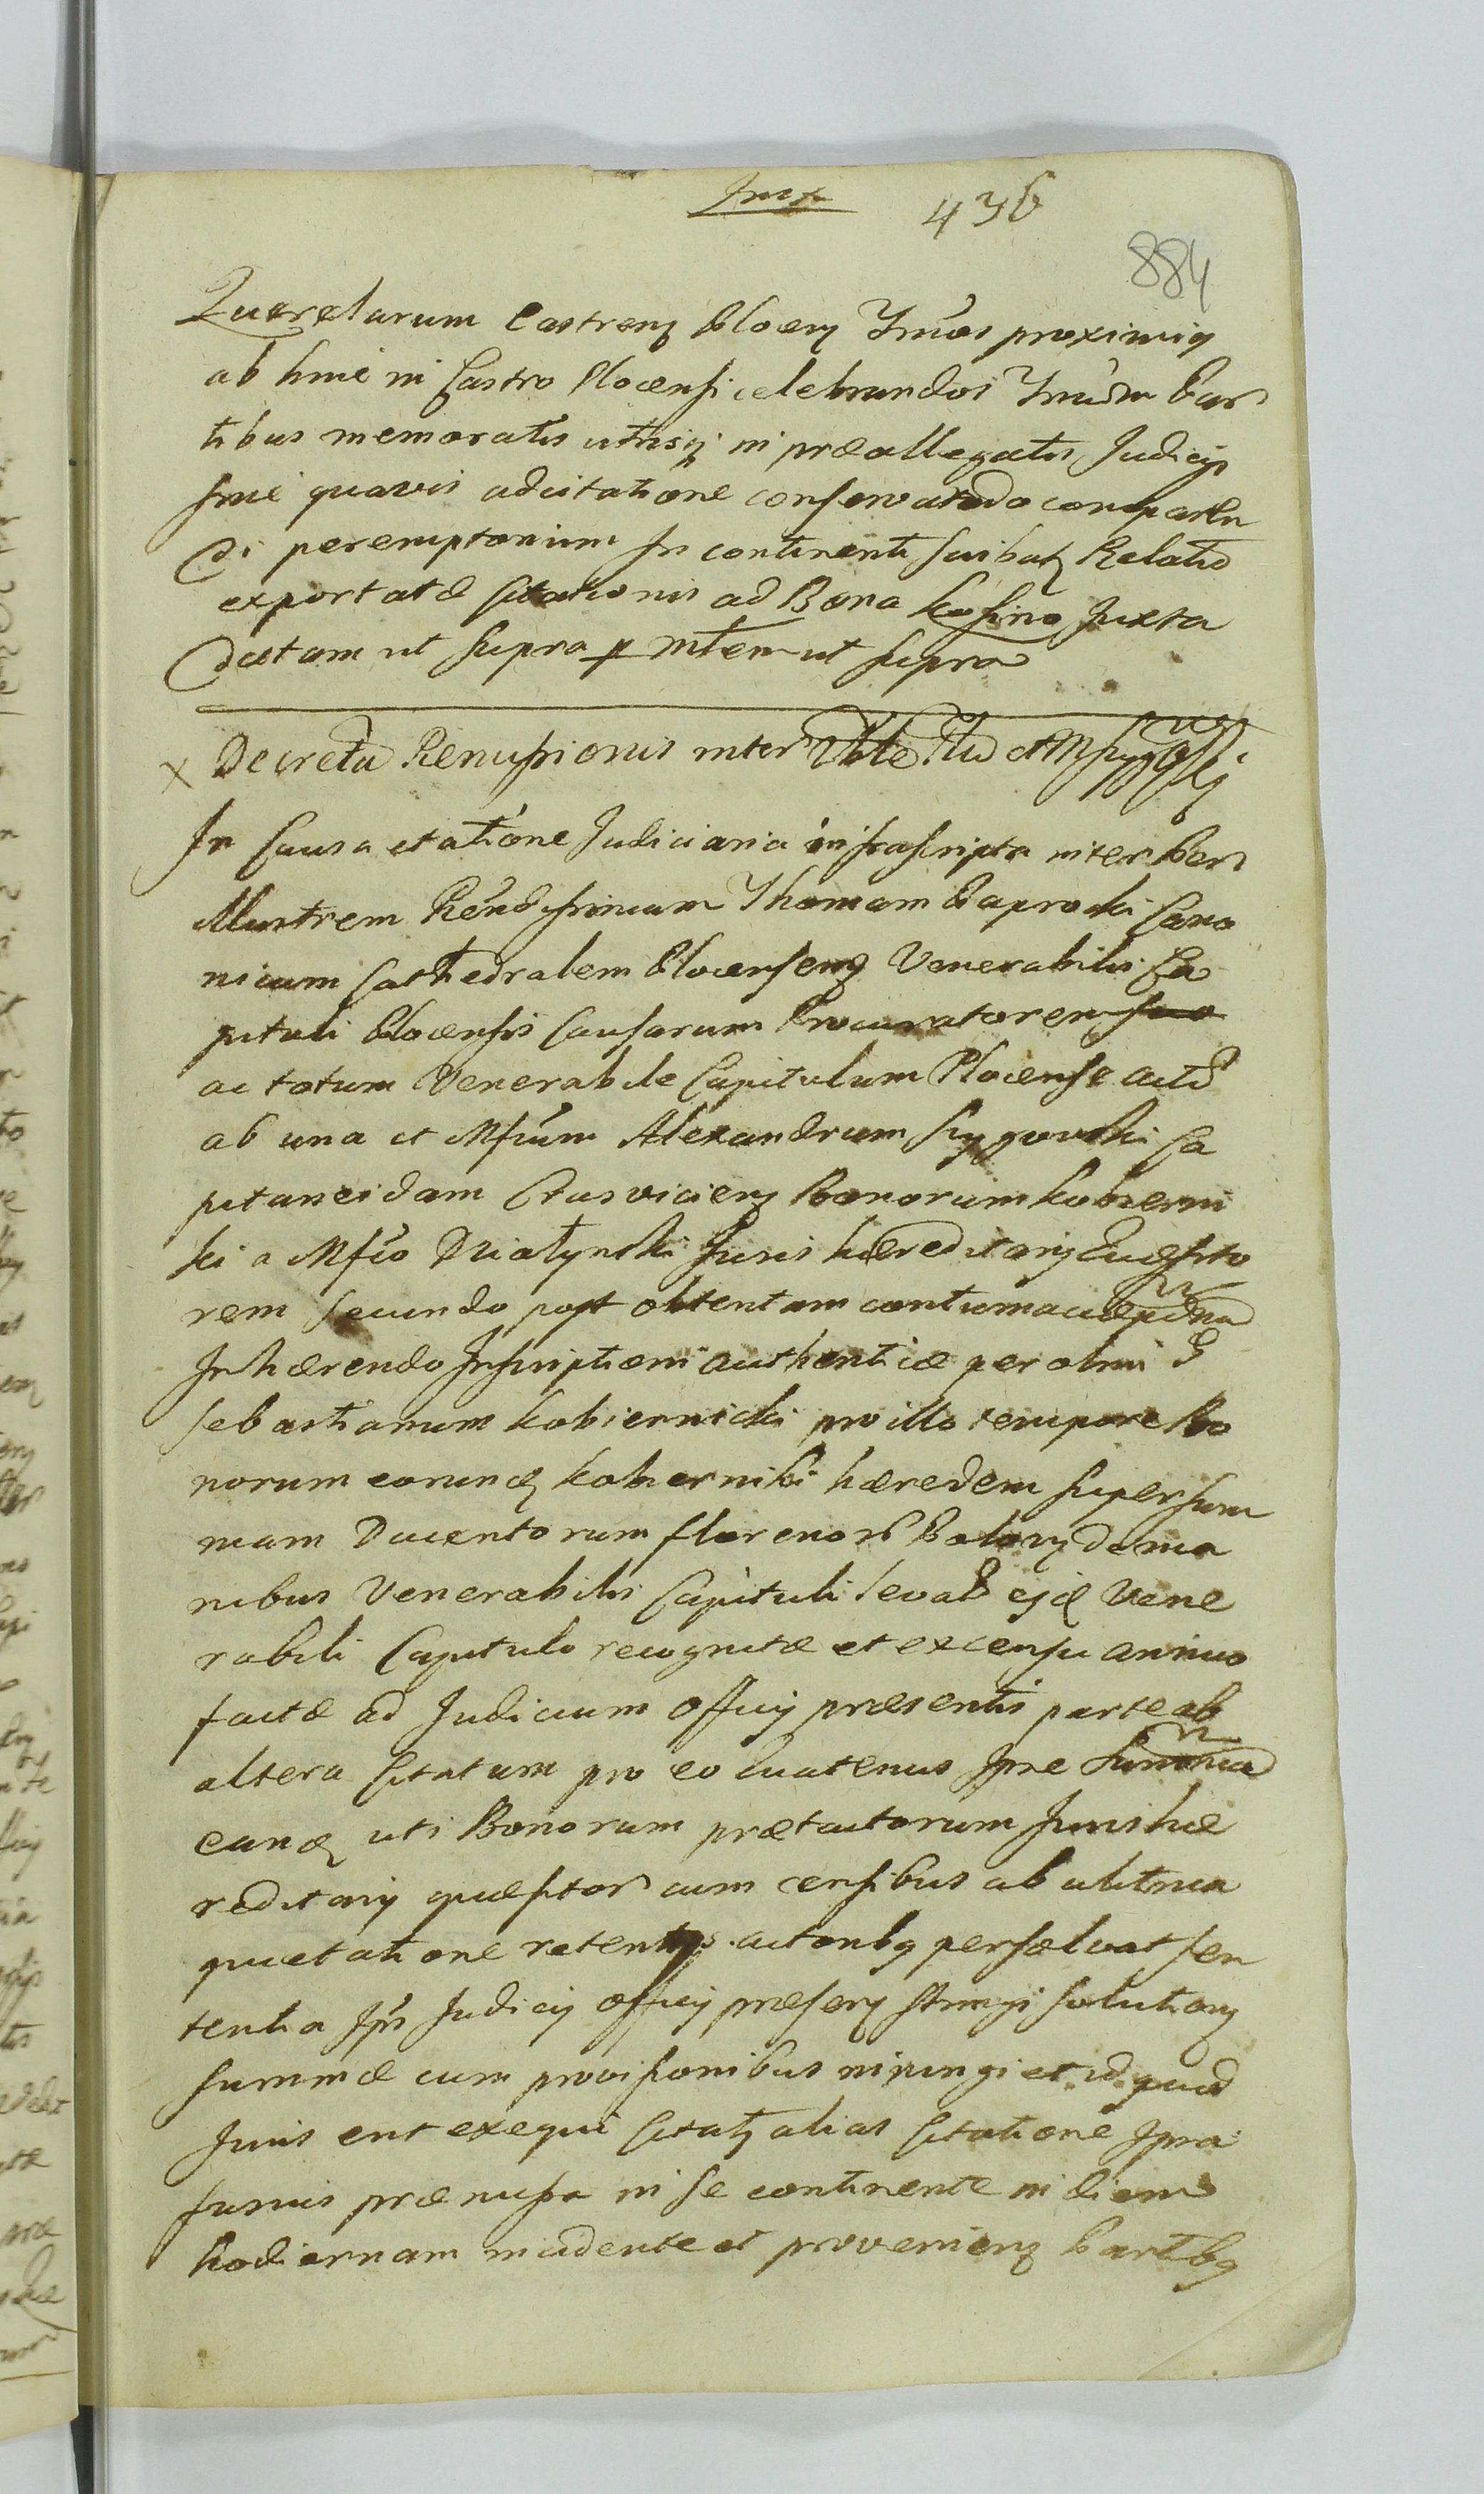 436
884
Querelarum Castrenz Plocenz Tm̄os proximiq
ab hinc in Castro Plocensi celebrandos Tm̄um Par
tibus memoratis utrisq; in præallegatis Judicijs
sine quavis adcitatione conservando comparen
di peremptorium In continenti scribatz Relatio
exportatæ Citationis ad Bona Kosino Juxta
Datam ut supra p Mtem ut supra
x Decretū Remissionis inter Vble et
In Causa et atione Judiciaria infrascripta inter Per
Illustrem Rēndissimum Thomam Paprocki Cano
nicum Cathedralem Plocensemz Venerabilis Ca
pituli Plocensis Causarum Procuratorem
ac totum Venerabile Capitulum Plocense
ab una et Mfcum Alexandrum Sczygowski Ca
pitaneidam Crusvicienz Bonorum Kobierni
ki a Mfco Dzialynski Juris hæreditarij Quæsito
rem secundo post obtentam contumaciæ pœna
Inhærendo Inscriptioni authenticæ per olim G
Sebastianum Kobiernicki pro illo tempore Bo
norum eorundz Kobierniki hæredem super sum
mam Ducentorum florenor Polonz de ma
nibus Venerabilis Capituli levat ejdz Vene
rabili Capitulo recognitæ et ex censu annuo
factæ ad Judicium Officij præsentis parte ab
altera Citatum pro eo quatenus Ipse Summam
eandz uti Bonorum prætactorum Juris hæ
reditarij quæsitor cum censibus ab ultima
quietatione retentis actoribq persolvat sen
tentia Ipsi Judicij Officij præsenz stringi solutionz
summæ cum provisionibus injungi et id quod
Juris erit exequi Citatz alias Citatione Ipsa
Junus præmissa in se continente in diem
hodiernam incidente et provenienz Partibq